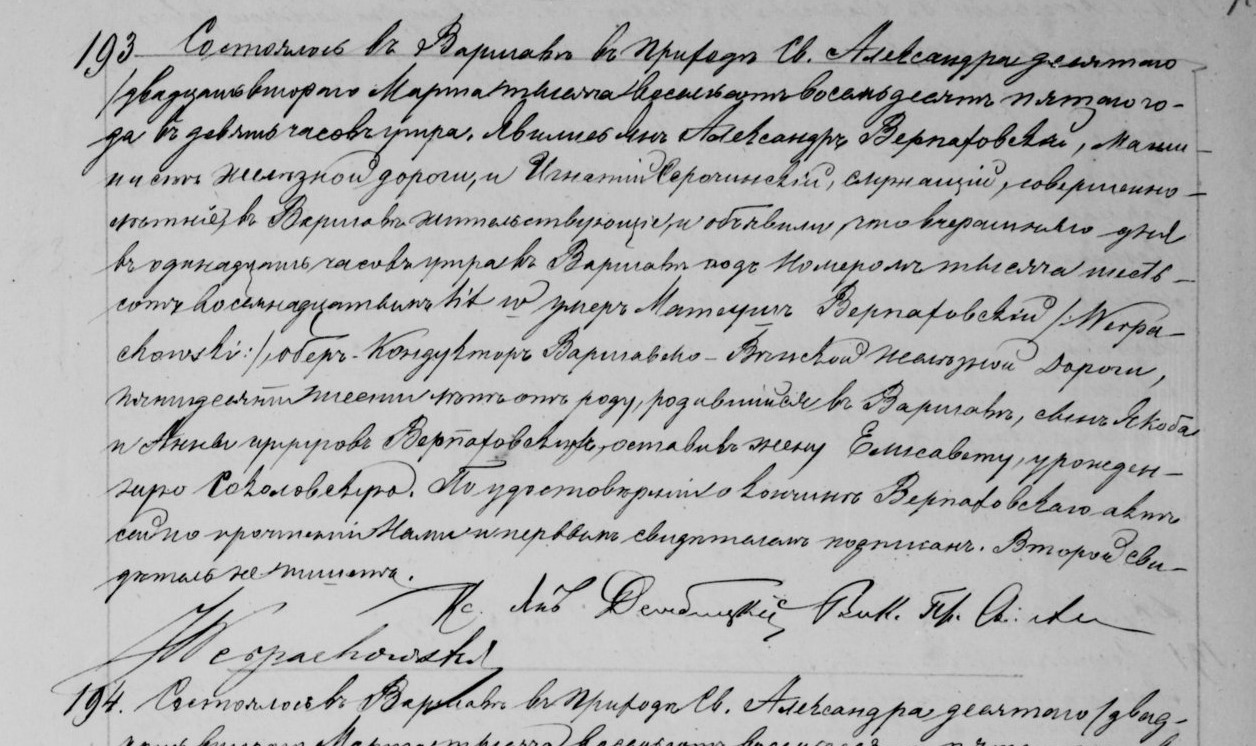 193 Состоялось въ Варшавѣ въ приходѣ Св. Александра десятаго
/двадцать втораго Марта тысяча восемьсотъ восемьдесятъ пятаго го-
да въ девять часовъ утра. Явились Александръ Верпаховскій, маши-
нистъ желѣзной дороги, и Игнатій Серочинскій, служащій, совершенно-
лѣтніе, въ Варшавѣ жительствующіе, и объявили, что вчерашняго дня
въ одинадцать часовъ утра въ Варшавѣ подъ номеромъ тысяча шесть-
сотъ восемнадцатымъ lit w умеръ Матеушъ Верпаховскій /:Werpa-
chowski:/, оберъ-кондукторъ Варшавско-Вѣнской желѣзной дороги,
пятидесяти шести лѣтъ отъ роду, родившійся въ Варшавѣ, сынъ Якоба
и Анны супруговъ Верпаховскихъ, оставивъ жену Елисавету, урожден-
ную Соколовскую. По удостовѣреніи о кончинѣ Верпаховскаго актъ
сей по прочтеніи Нами и первымъ свидѣтелемъ подписанъ. Второй сви-
дѣтель не пишетъ.
Кс. Янъ Вик. Пр. Св. Ал
Werpachowski
194. Состоялось въ Варшавѣ въ приходѣ Св. Александра десятаго /двад-
цать втораго Марта тысяча восемьсотъ